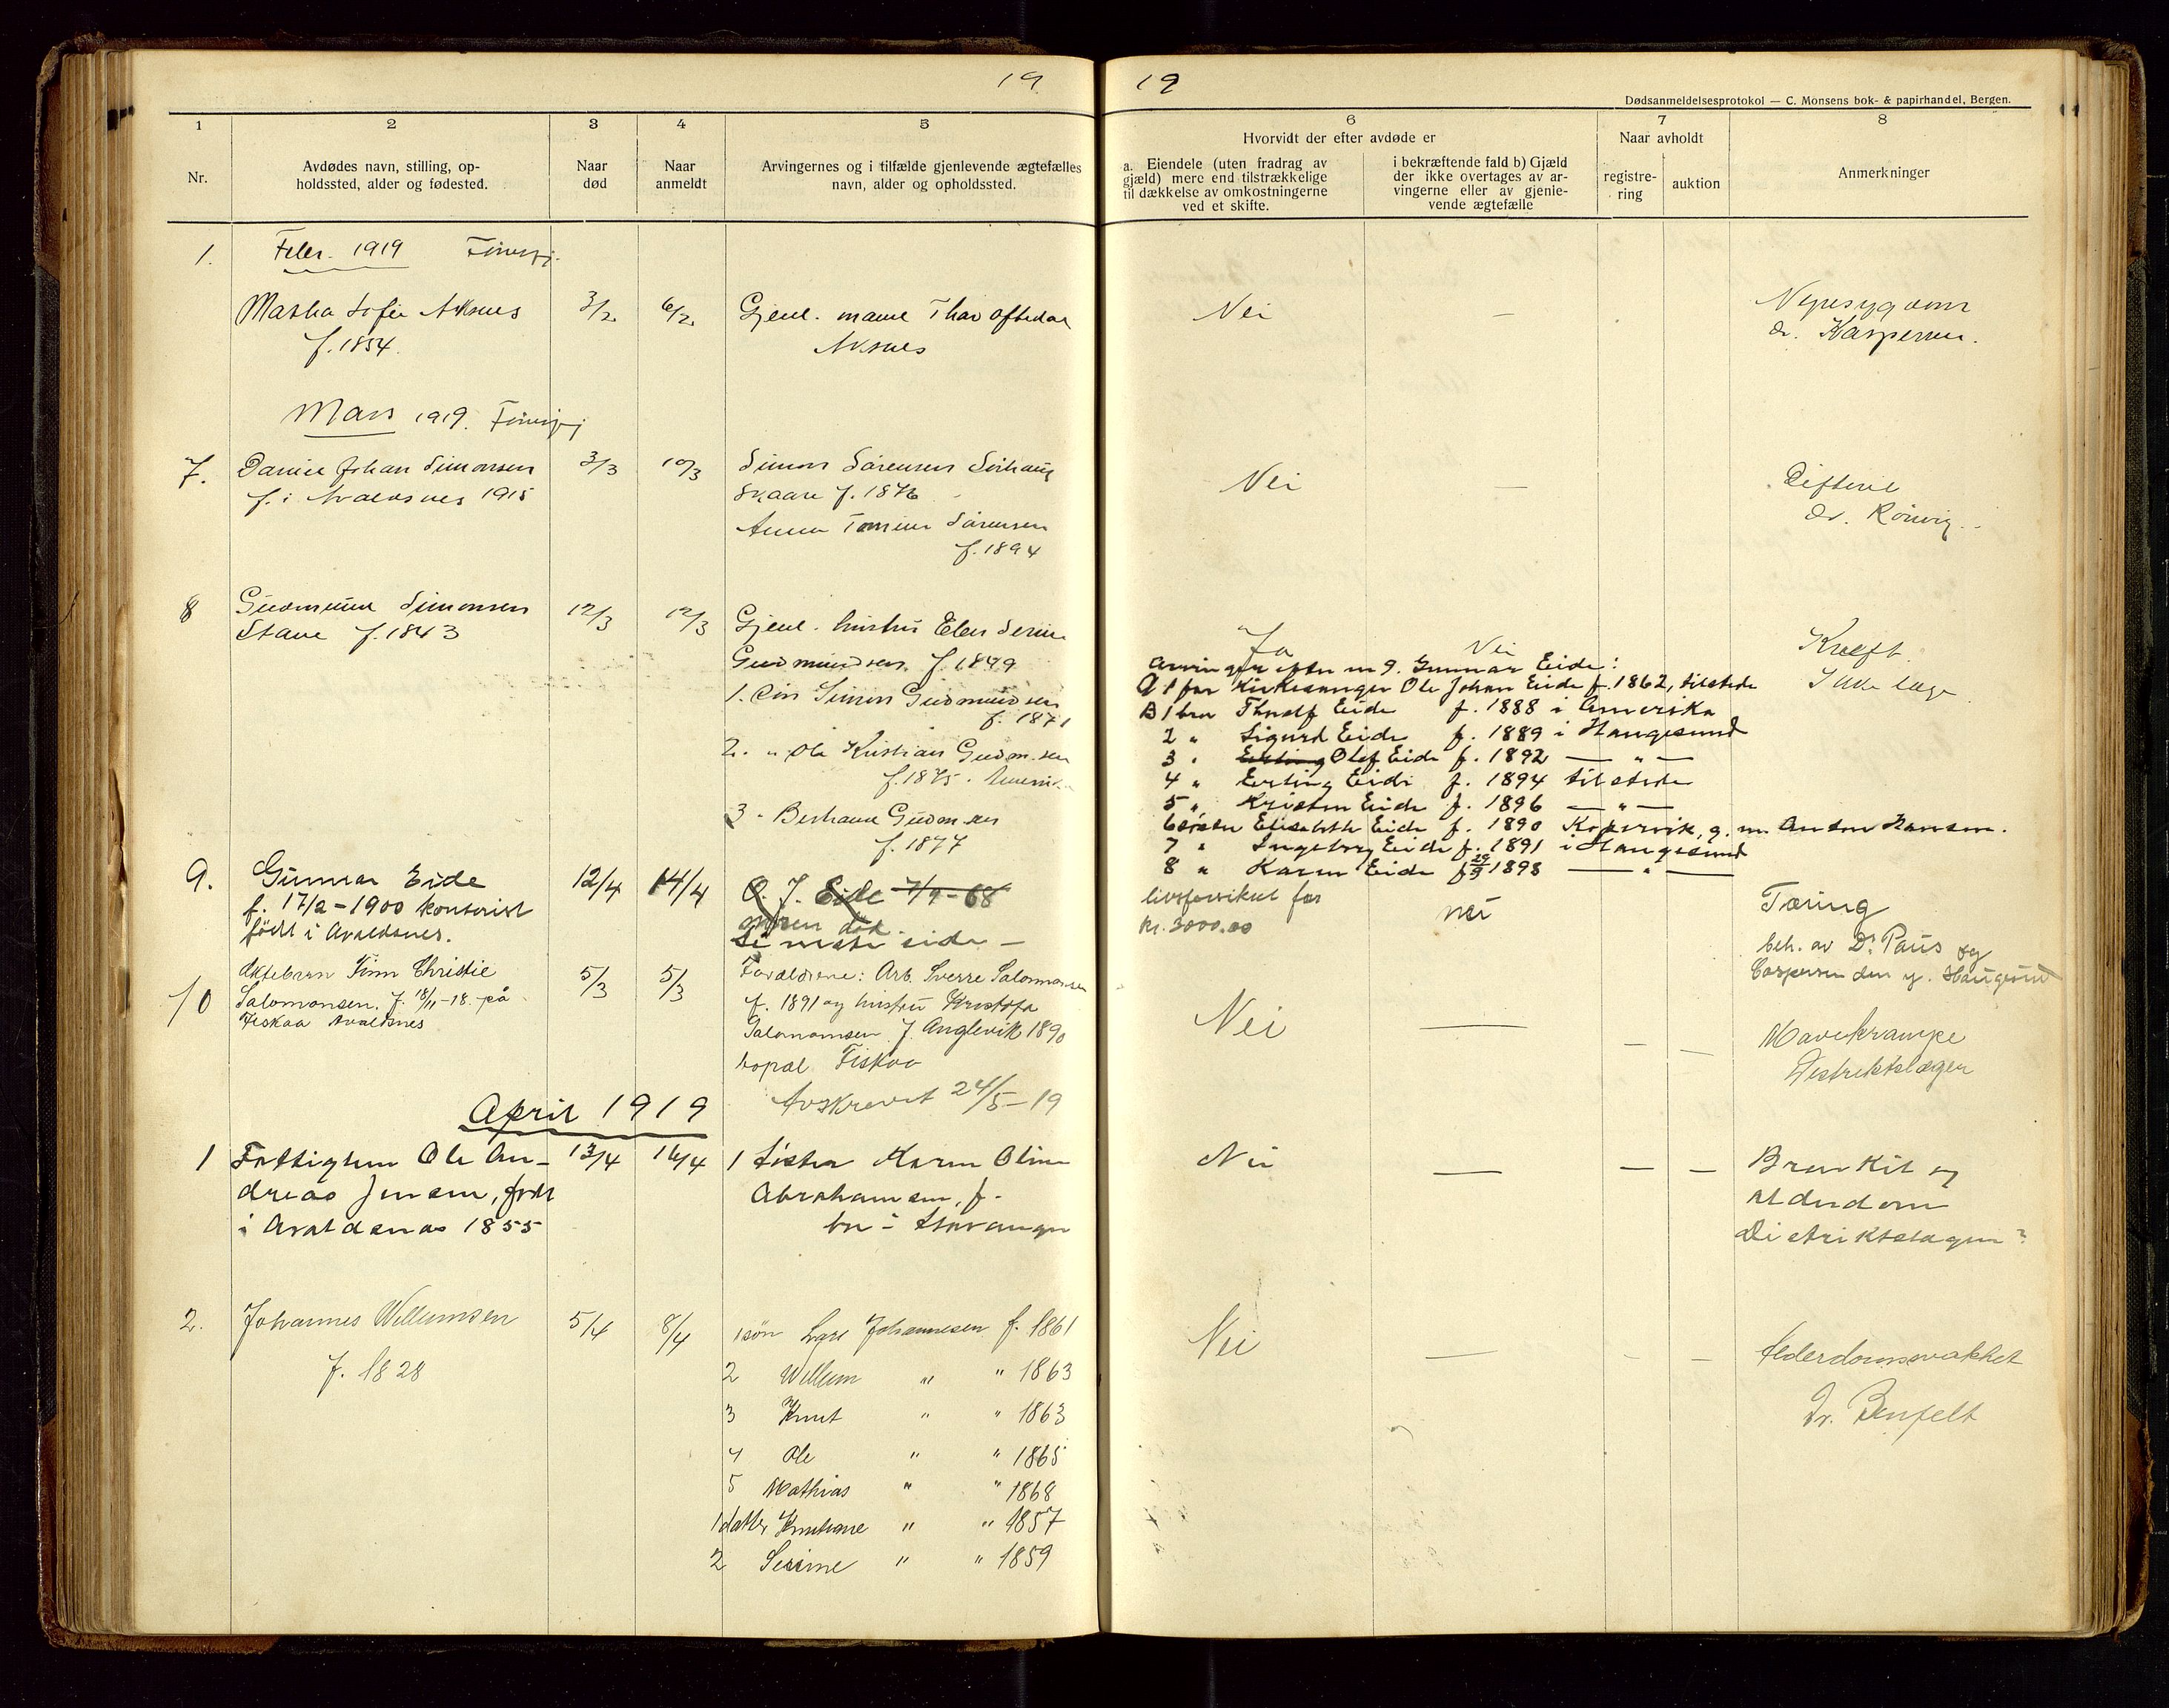 19
19
Dødsanmeldelsesprotokol — C. Monsens bok- & papirhandel, Bergen.
1
2
3
4
5
6
7
8
Nr.
Avdødes navn, stilling, op-
holdssted, alder og fødested.
Naar
død
Naar
anmeldt
Arvingernes og i tilfælde gjenlevende ægtefælles
navn, alder og opholdssted.
Hvorvidt der efter avdøde er
a. Eiendele (uten fradrag av
gjæld) mere end tilstrækkelige
til dækkelse av omkostningerne
ved et skifte.
i bekræftende fald b) Gjæld
der ikke overtages av ar-
vingerne eller av gjenle-
vende ægtefælle
Naar avholdt
registre-
ring
auktion
Anmerkninger
1. Febr. 1919
Martha Sofie Aksnes 3/2 6/2 Gjenl. mann Thor Oftedal
f. 1854. Aksnes
Nei —
dr. Kaspersen.
Mars 1919.
7. Daniel Johan Simonsen 3/3 10/3 Simon Sørensen Sørhaug
f. i Avaldsnes 1915 Skaare f. 1876
Anna Tomine Sørensen
f. 1894
Nei — Difteri
dr. Rönvig.
8 Gudmund Simonsen 12/3 12/3 Gjenl. hustru Elen Serine
Stave f. 1843 Gudmundsen f. 1849
1. Sön Simon Gudmundsen
f. 1871
2. " Ole Kristian Gudm.sen
f. 1875. Amerika
3 - Berthane Gudm.sen
f. 1877
Ja Nei Kreft.
Ikke læge
Arvinger efter nr 9. Gunnar Eide:
A 1 far Kirkesanger Ole Johan Eide f. 1862, tilstede
B 1 bror Thoralf Eide f. 1888 i Amerika
2 " Sigurd Eide f. 1889 i Haugesund
3 " Erling Olaf Eide f. 1892 — " —
4 " Erling Eide f. 1894 tilstede
5 " Kristen Eide f. 1896 — " —
6 søster Elisabeth Eide f. 1890 Kopervik, g. m. Anton Hansen.
7 " Ingeborg Eide f. 1891 i Haugesund
8 " Karen Eide f 29/9 1898 — " —
9. Gunnar Eide 12/4 14/4 O. J. Eide 7/9-68
f. 17/2-1900 kontorist moren död.
født i Avaldsnes. Se neste side —
livsforsikret for
kr. 3000.00 nei Tæring
beh. av Dr. Paus og
Caspersen den y. Haugesund
10 Ektebarn Finn Christie 5/3 5/3 Forældrene: Arb. Sverre Salomonsen
Salomonsen. f. 18/11-18. på f. 1891 og hustru Kristofa
Fiskaa Avaldsnes Salomonsen f. Anglevik 1890
bopæl Fiskaa
Nei — — — Mavekrampe
Distriktslægen
Avskrevet 24/5-19
April 1919
1 Fattiglem Ole An- 13/4 16/4 1 søster Karen Oline
dreas Jensen, født Abrahamsen, f.
i Avaldsnes 1855 bor i Stavanger
Nei — — — Bronkit og
alderdom
Distriktslægen?
2. Johannes Willumsen 5/4 8/4 1 søn Lars Johannesen f. 1861
f. 1828
2 Willum " " 1863
3 Knut " " 1863
4 Ole " " 1865
5 Mathias " " 1868
1 datter Knutiane " " 1857
2 Serine " " 1859
Nei — — — Alderdomsvakhet
Dr. Benfelt